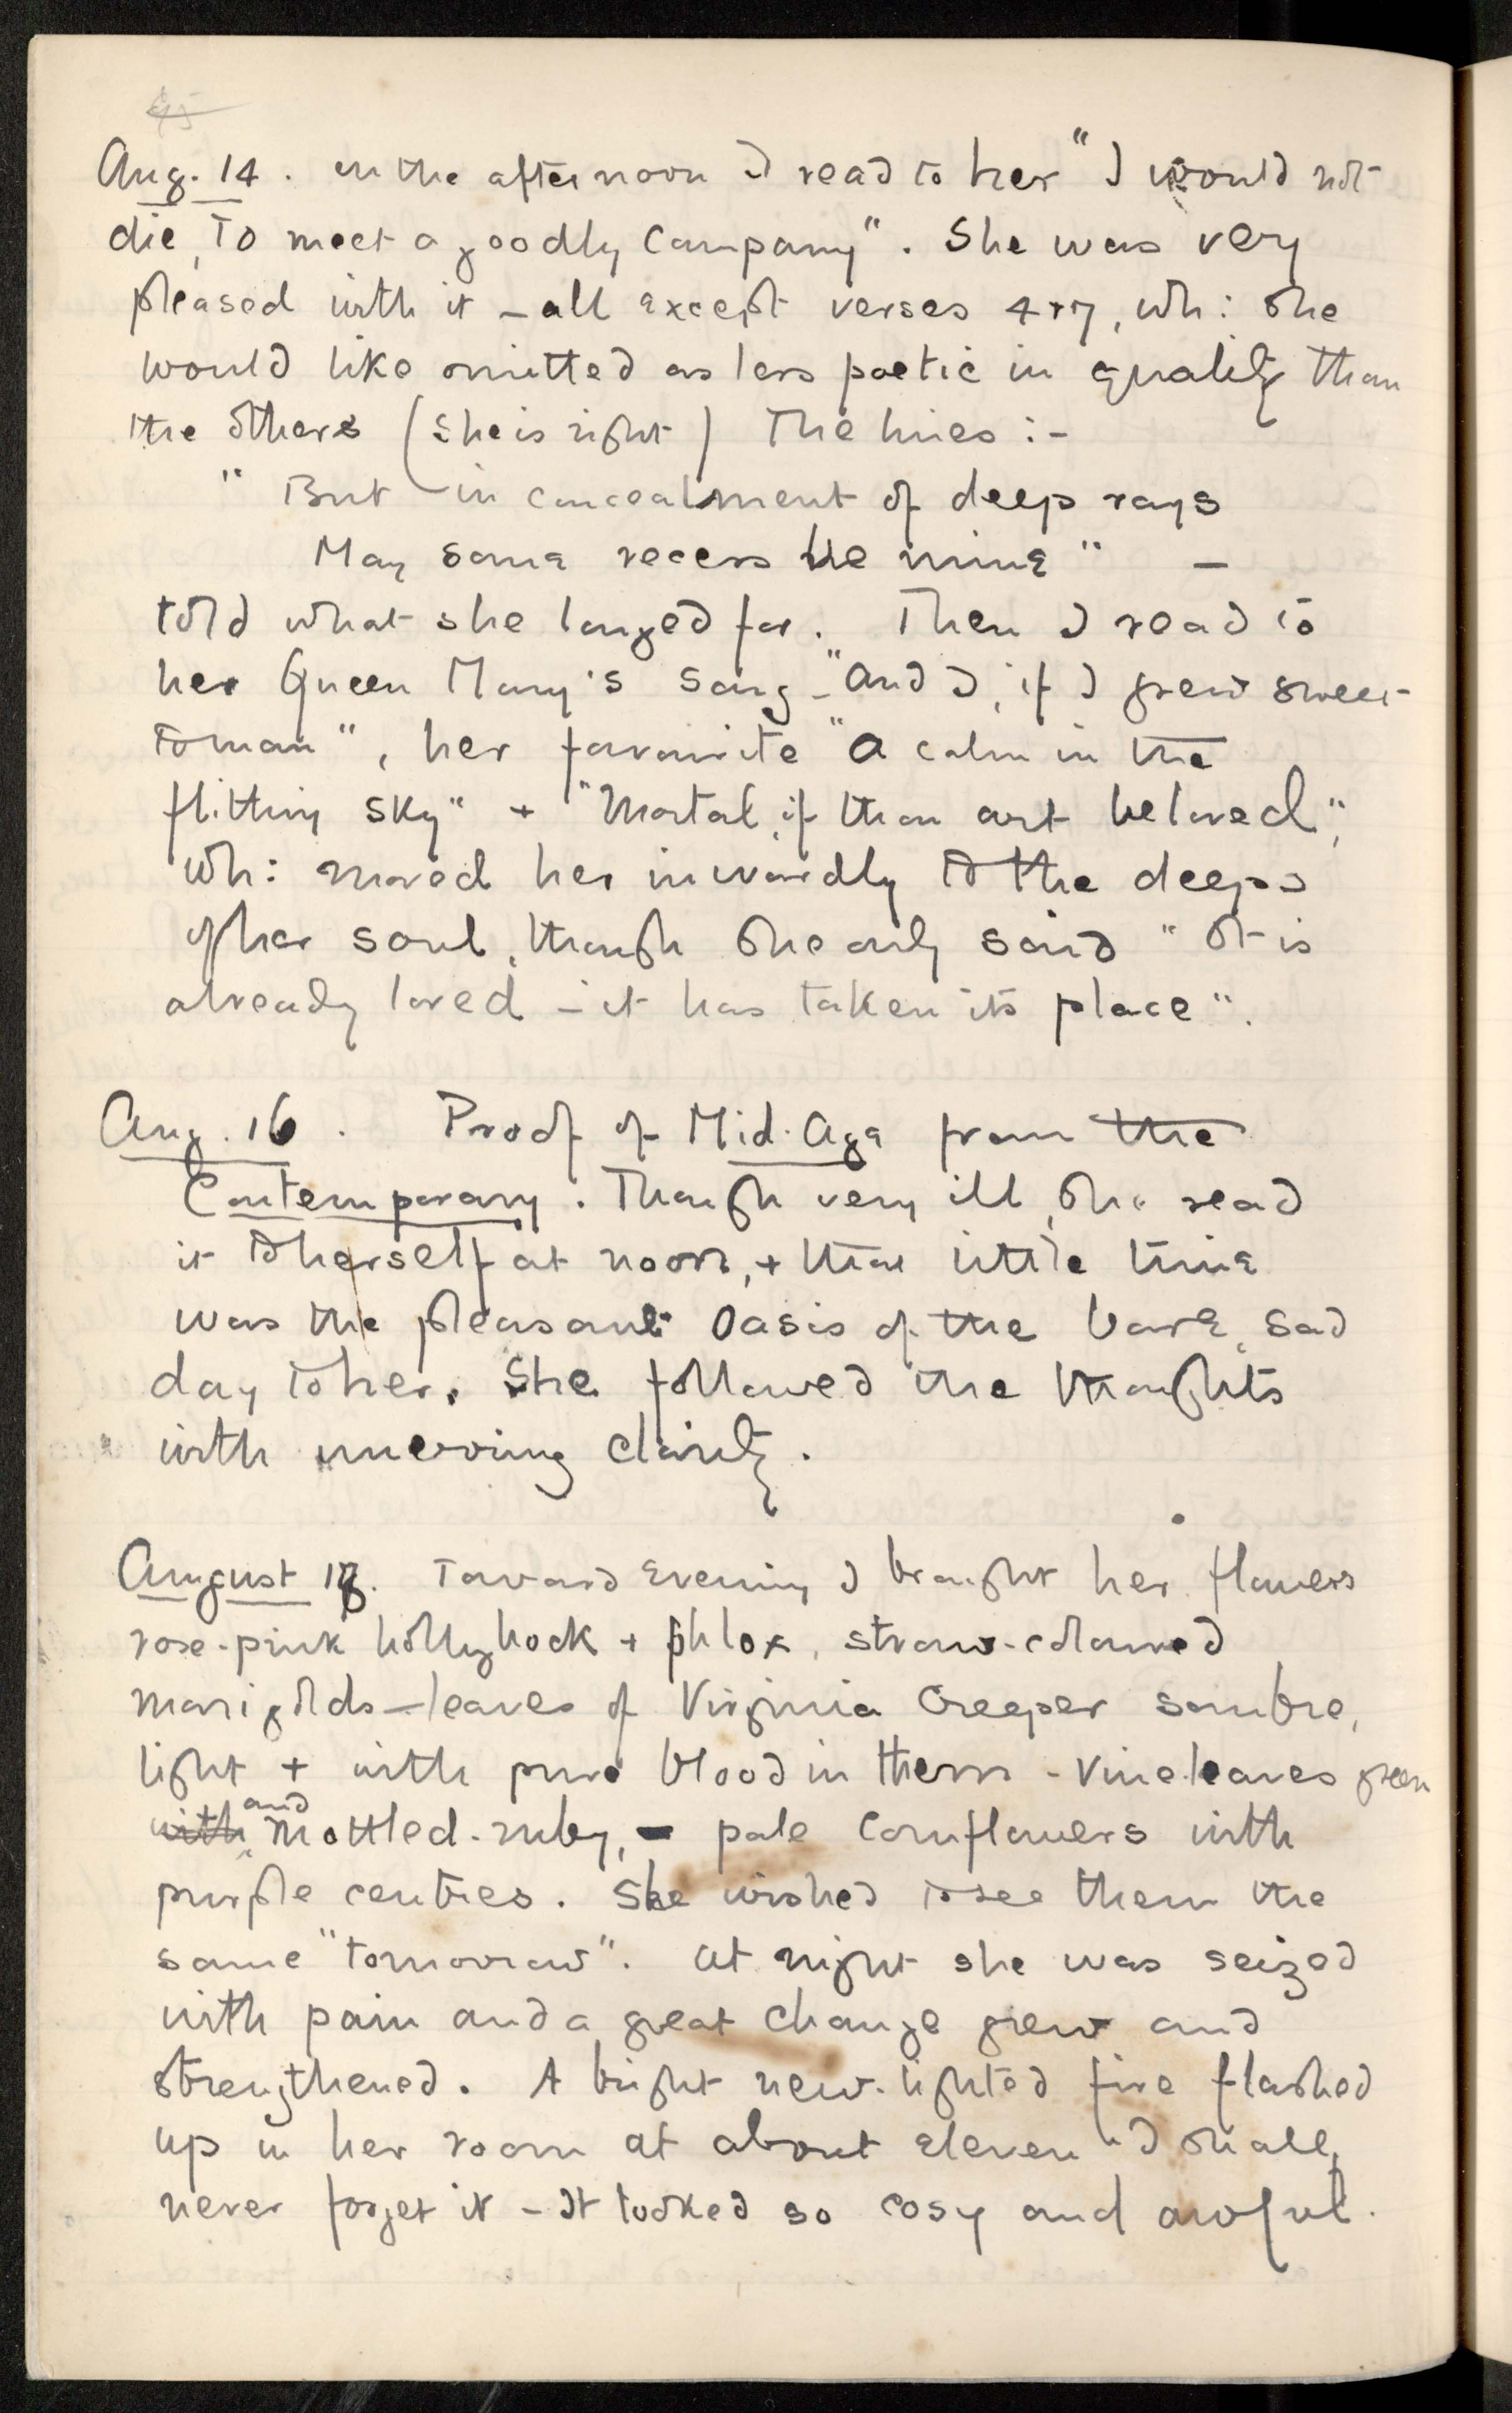 Aug. 14. In the afternoon I read to her "I would not
die, To meet a goodly Company". She was very
pleased with it – all except verses 4 + 7, wh: she
would like omitted as less poetic in quality than
the others (she is right) The lines :-
" But in concealment of deep rays
May some recess be mine" –
told what she longed for. Then I read to
her Queen Mary's Song – "And I, if I grew sweet
to man", her favourite "A calm in the
flitting sky" + "Mortal, if thou art beloved",
wh: moved her inwardly to the deeps
of her soul, though she only said "It is
already loved – it has taken its place".
Aug. 16. Proof of Mid-Age from the
Contemporary. Though very ill, she read
it to herself at noon, + that little time
was the pleasant Oasis of the bare, sad
day to her. She followed the thoughts
with unerring clarity.
August 18. Toward Evening I brought her flowers
rose-pink hollyhock + phlox, straw-coloured
marigolds – leaves of Virginia Creeper sombre,
light + with pure blood in them - Vine-leaves green
with and mottled-ruby, – pale Cornflowers with
purple centres. She wished to see them the
same "tomorrow". At night she was seized
with pain and a great change grew and
strengthened. A bright new-lighted fire flashed
up in her room at about Eleven – I shall
never forget it – It looked so cosy and awful.